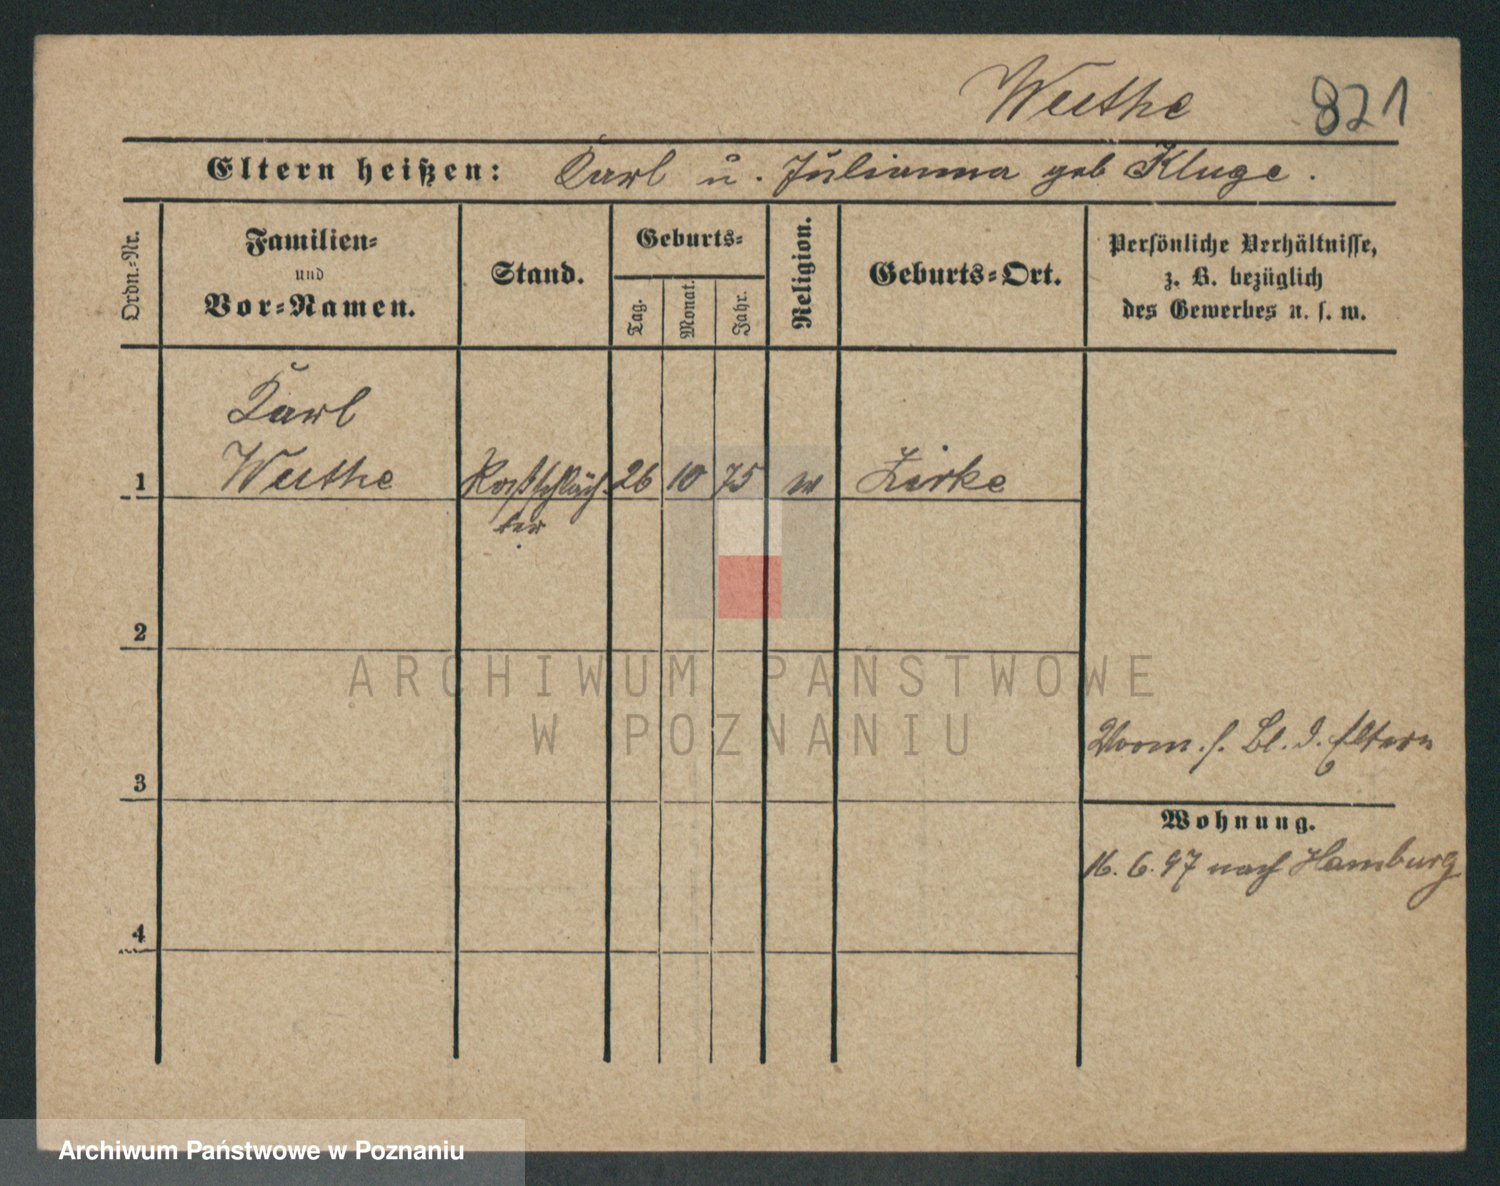 Weethe 821
Eltern heißen: Karl u. Julianna geb Kluge.
Ordn.-Nr.
Familien-
und
Vor-Namen.
Stand.
Geburts-
Tag.
Monat.
Jahr.
Religion.
Geburts-Ort.
Persönliche Verhältnisse,
z. B. bezüglich
des Gewerbes u. s. w.
Karl
1 Weethe Roßschläch- 26 10 75 Zirke
ter
2
ARCHIWUM PAŃSTWOWE
W POZNANIU
s. Bl. d. Eltern
3
Wohnung.
16.6.97 nach Hamburg
4
Archiwum Państwowe w Poznaniu